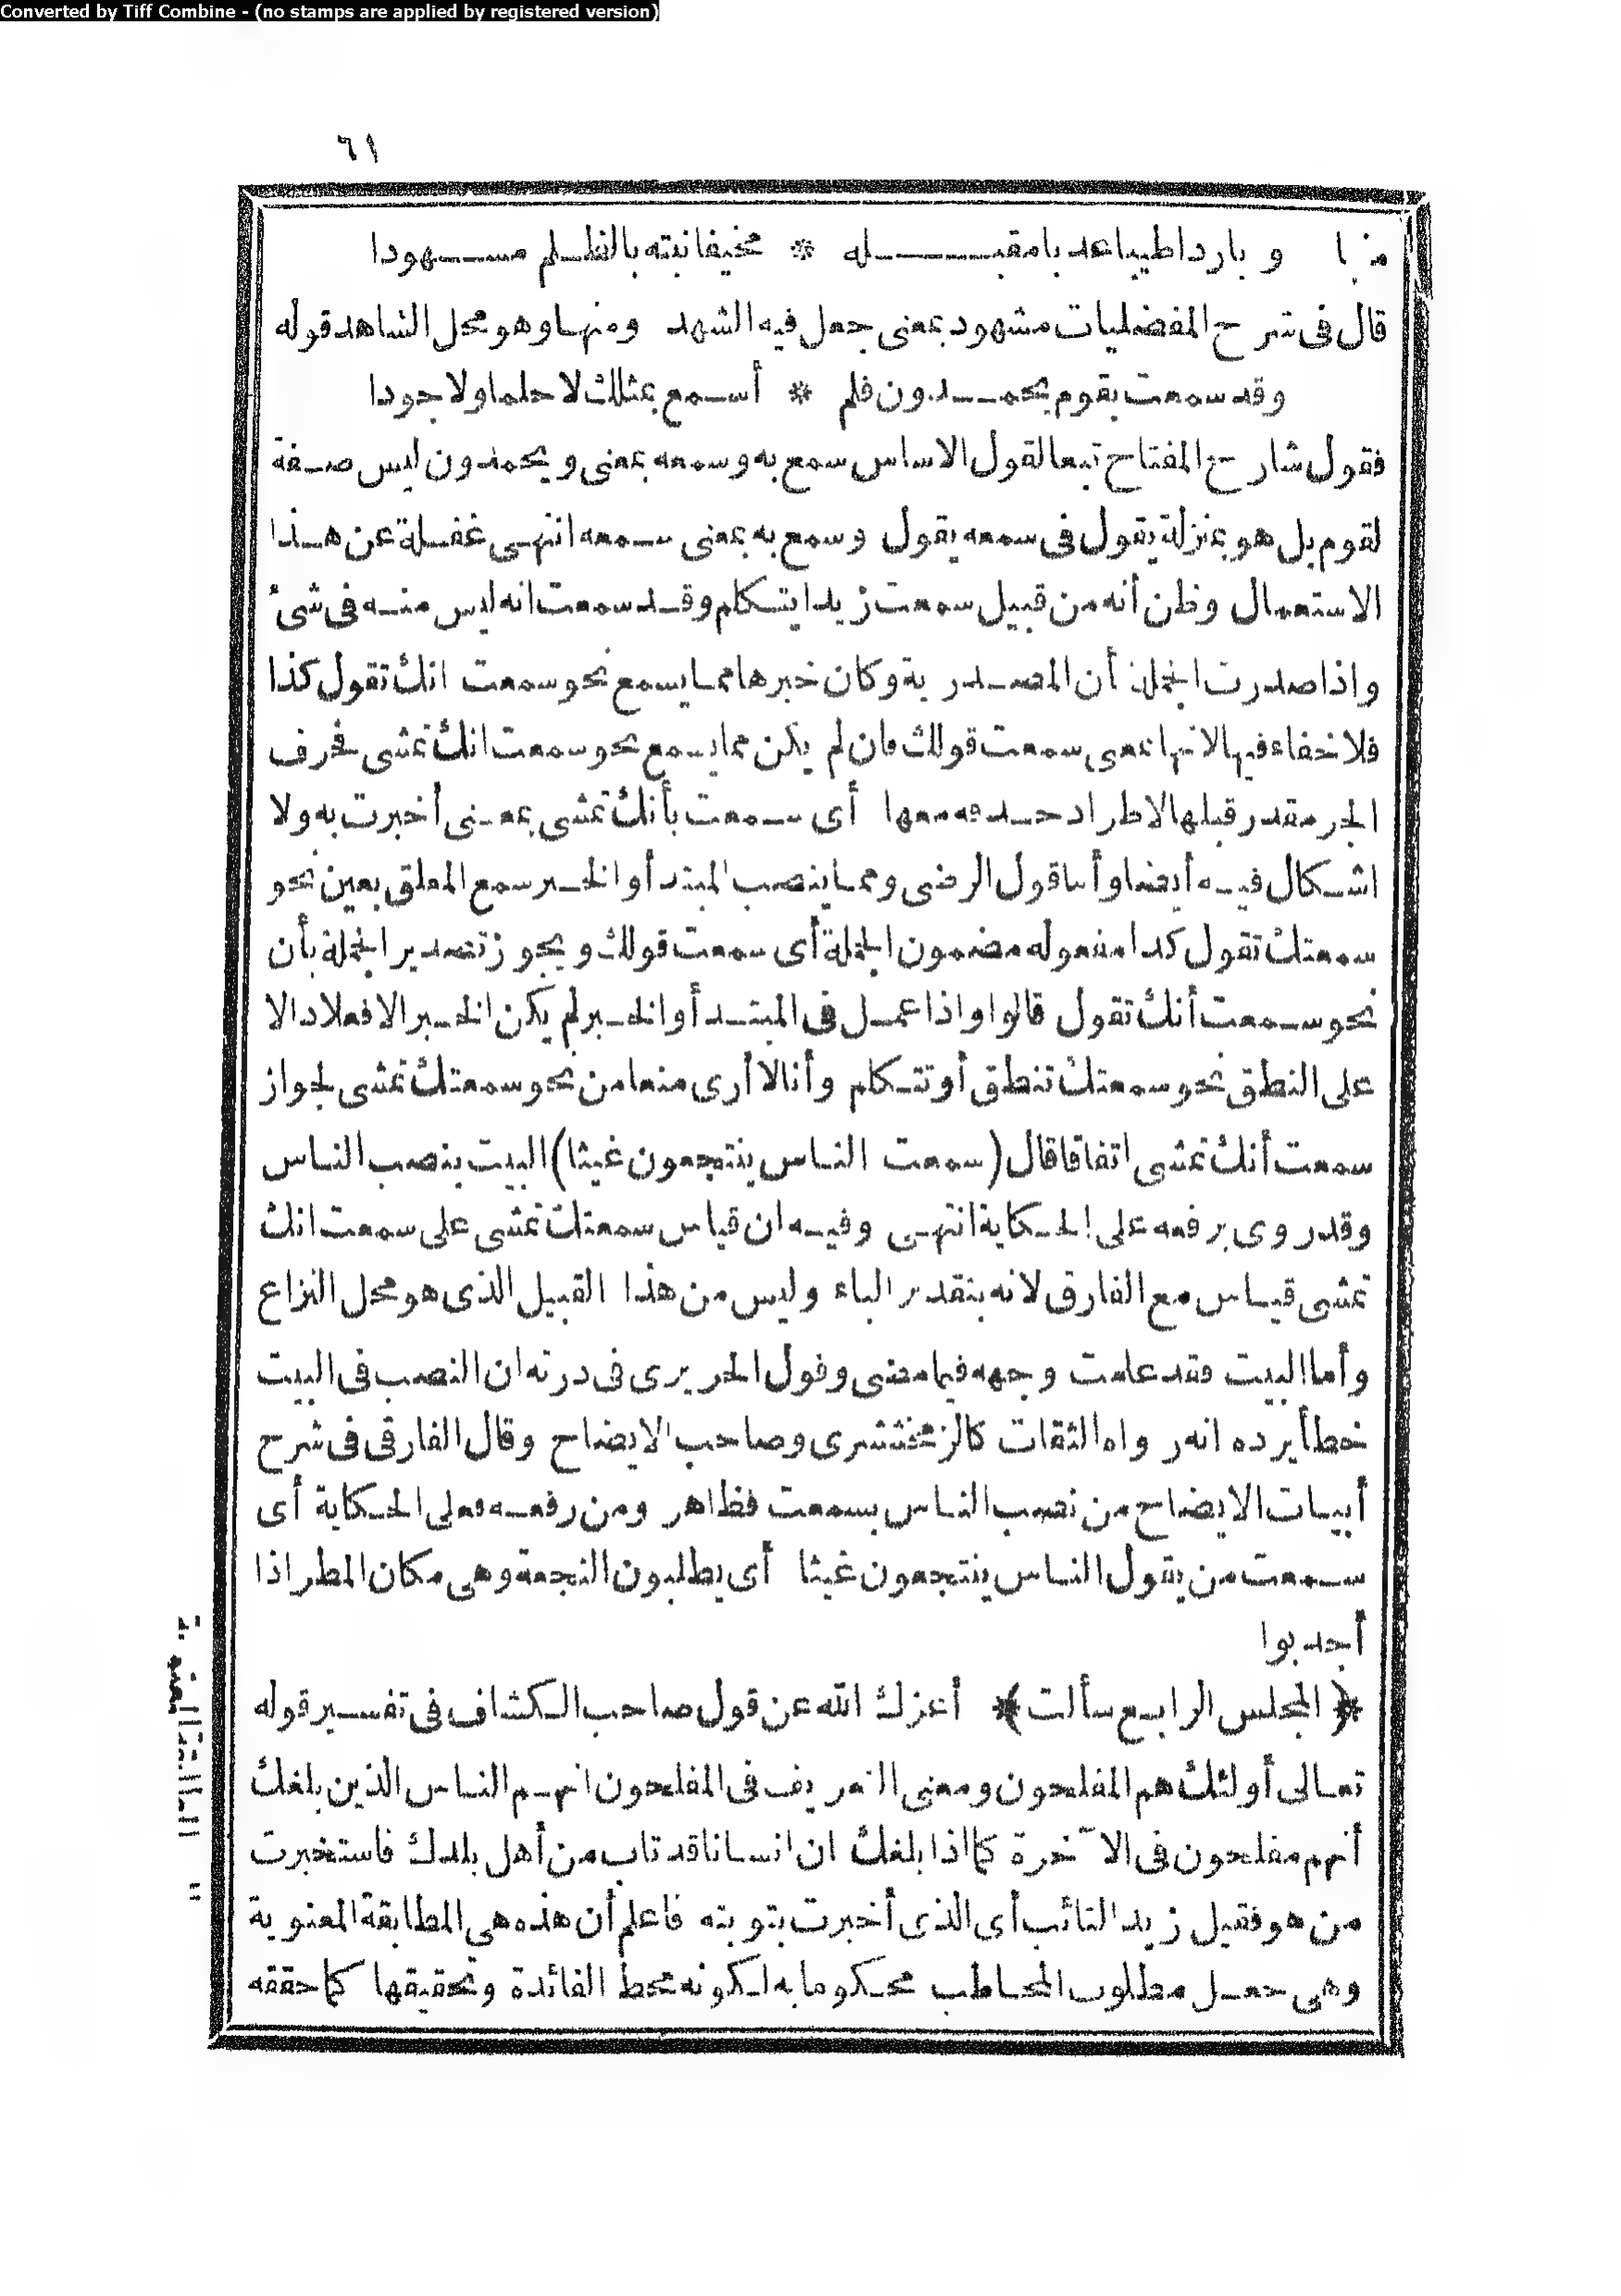 Converted by Tiff Combine - (no stamps are applied by registered version)
٦١
منها وبارداطيباعذبامقبــله * مخيفانبته بالظلم مشــهودا
قال فى شرح المفضليات مشهود بمعنى جعل فيه الشهد ومنهاوهومحل الشاهدقوله
وقدسمعت بقوم يحمـدون فلم * أسمع بمثلك لاحلماولاجودا
فقول شارح المفتاح تبعالقول الاساس سمع به وسمعه بمعنى ويحمدون ليس صفة
لقوم بل هو بمنزلة يقول فى سمعه يقول وسمع به بمعنى سمعه انتهى غفلة عن هذا
الاستعمال وظن أنه من قبيل سمعت زيدا يتكلم وقد سمعت انه ليس منه فى شئ
واذاصدرت الجملة أن المصدرية وكان خبرهامما يسمع نحوسمعت انك تقول كذا
فلاخفاءفيهالانها بمعنى سمعت قولك فان لم يكن مما يسمع نحوسمعت انك تمشى فحرف
الجرمقدرقبلهالاطراد حذفه معها أى سمعت بأنك تمشى بمعنى أخبرت به ولا
اشكال فيه أيضاوأماقول الرضى ومما ينصب المبتدأوالخبرسمع المعلق بعين نحو
سمعتك تقول كذامفعوله مضمون الجملة أى سمعت قولك ويجوزتصدير الجملة بأن
نحوسمعت أنك تقول قالواواذاعمل فى المبتدأوالخبرلم يكن الخبرالافعلادالا
على النطق نحوسمعتك تنطق أوتتكلم وأنالاأرى منعامن نحوسمعتك تمشى لجواز
سمعت أنك تمشى اتفاقاقال (سمعت الناس ينتجعون غيثا) البيت بنصب الناس
وقدروى برفعه على الحكاية انتهى وفيه ان قياس سمعتك تمشى على سمعت انك
تمشى قياس مع الفارق لانه بتقدير الباء وليس من هذا القبيل الذى هومحل النزاع
وأماالبيت فقدعلمت وجهه فيمامضى وقول الحريرى فى درته ان النصب فى البيت
خطأيرده انه رواه الثقات كالزمخشرى وصاحب الايضاح وقال الفارقى فى شرح
أبيات الايضاح من نصب الناس بسمعت فظاهر ومن رفعه فعلى الحكاية أى
سمعت من يقول الناس ينتجعون غيثا أى يطلبون النجعة وهى مكان المطراذا
أجدبوا
﴿المجلس الرابع سألت﴾ أعزك الله عن قول صاحب الكشاف فى تفسيرقوله
تعالى أولئك هم المفلحون ومعنى التعريف فى المفلحون انهم الناس الذين بلغك
أنهم مفلحون فى الآخرة كمااذابلغك ان انساناقدتاب من أهل بلدك فاستخبرت
من هوفقيل زيدالتائب أى الذى أخبرت بتوبته فاعلم أن هذه هى المطابقة المعنوية
وهى جعل مطلوب المخاطب محكومابه لكونه محط الفائدة وتحقيقها كماحققه